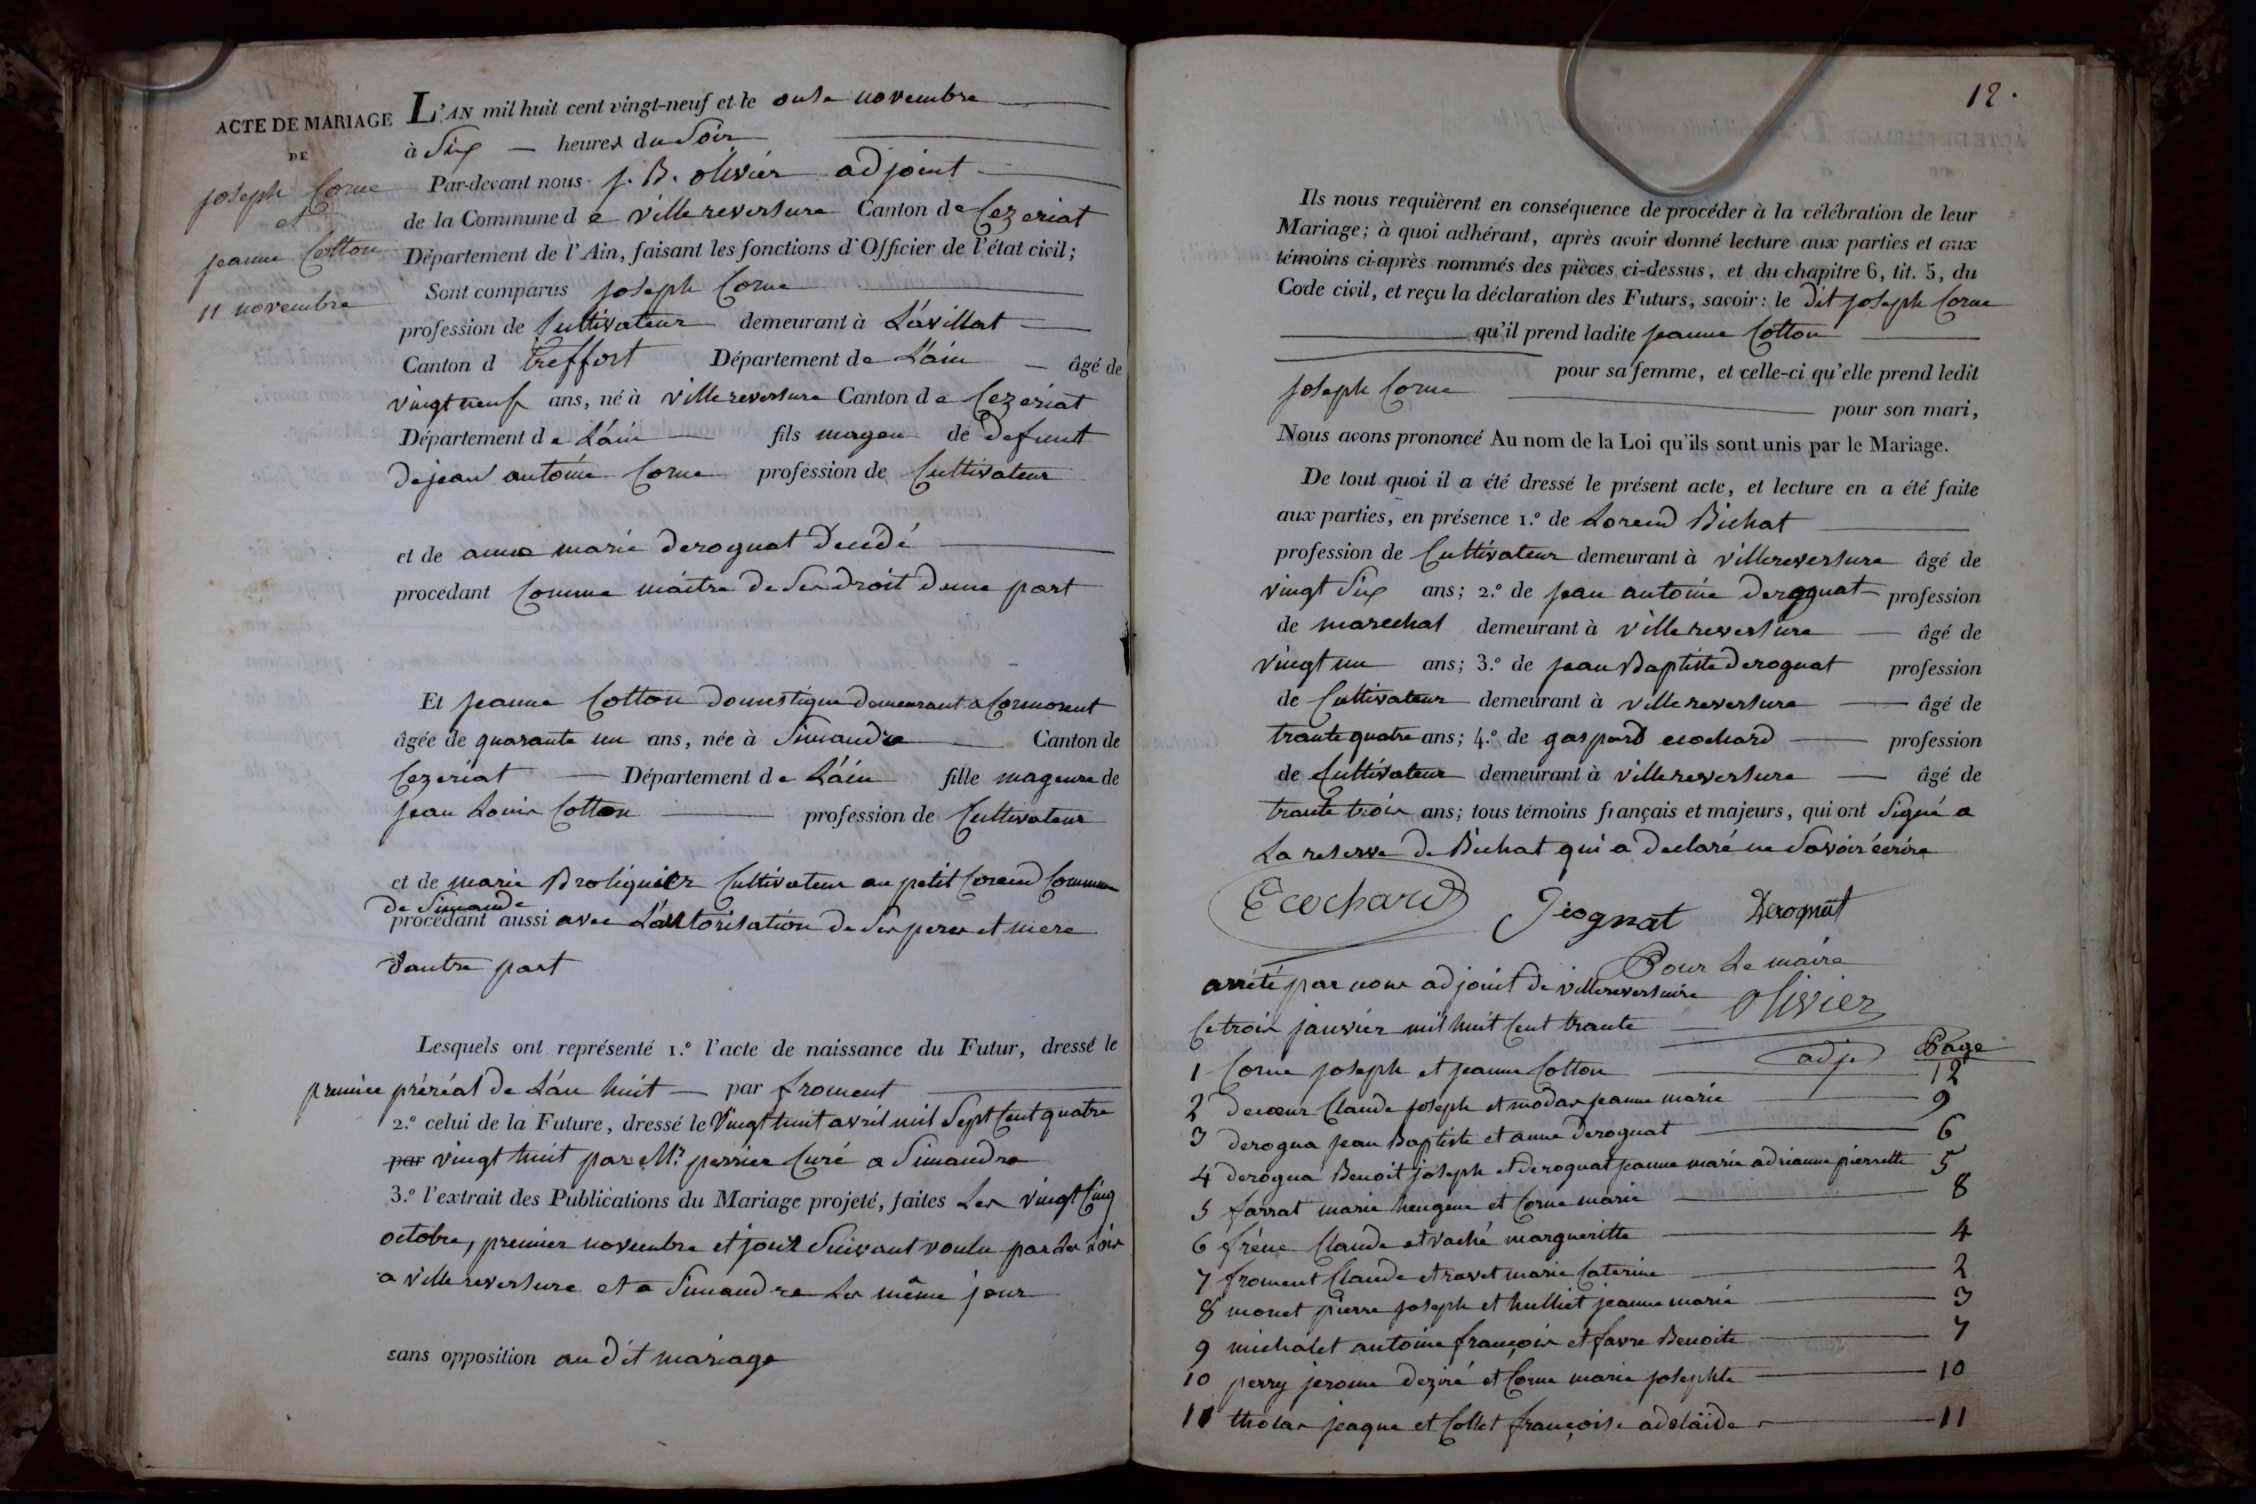 ACTE DE MARIAGE
DE
joseph Corne
et
jeanne Cotton
11 novembre
L'AN mil huit cent vingt-neuf et le onse novembre
à Six heures du Soir
Par-devant nous j. B. olivier adjoint
de la Commune de villereversure Canton de Cezeriat
Département de l'Ain, faisant les fonctions d'Officier de l'état civil;
Sont comparus joseph Corne
profession de Cultivateur demeurant à
Canton d treffort Département de L'ain âgé de
vingt neuf ans, né à villereversure Canton de Cezeriat
Département de L'ain fils mageu de defunt
de jean antoine Corne profession de Cultivateur
et de anne marie derognat
procédant Comme maitre de Ses droit dune part
Et jeanne Cotton domestique demeurant a Cormorent
âgée de quarante un ans, née à Simandre Canton de
Cezeriat Département de L'ain fille mageure de
jean Louis Cotton profession de Cultivateur
et de marie Cultivateur au petit Corend Commune
de Simande
procédant aussi avec L'autorisation de Ses peres et mere
dautre part
Lesquels ont représenté 1.º l'acte de naissance du Futur, dressé le
premier préréal de L'an huit par froment
2.º celui de la Future, dressé le vingt huit avril mil Sept Cent quatre
par vingt huit par Mr. perrier Curé a Simandre
3.º l'extrait des Publications du Mariage projeté, faites Les vingt Cinq
octobre, premier novembre et jour Suivant voulu par Les Lois
a villereversure et a Simandre Les même jour
sans opposition au dit mariage
12.
Ils nous requièrent en conséquence de procéder à la célébration de leur
Mariage; à quoi adhérant, après avoir donné lecture aux parties et aux
témoins ci-après nommés des pièces ci-dessus, et du chapitre 6, tit. 5, du
Code civil, et reçu la déclaration des Futurs, savoir: le dit joseph Corne
qu'il prend ladite jeanne Cotton
pour sa femme, et celle-ci qu'elle prend ledit
joseph Corne
pour son mari,
Nous avons prononcé Au nom de la Loi qu'ils sont unis par le Mariage.
De tout quoi il a été dressé le présent acte, et lecture en a été faite
aux parties, en présence 1.º de Lorend Bichat
profession de Cultivateur demeurant à villereversure âgé de
vingt Six ans; 2.º de jean antoine derognat profession
de marechal demeurant à villereversure âgé de
vingt un ans; 3.º de jean Baptiste derognat profession
de Cultivateur demeurant à villereversure âgé de
trante quatre ans; 4.º de gaspard ecochard profession
de Cultivateur demeurant à villereversure âgé de
trante trois ans; tous témoins français et majeurs, qui ont Signé a
La reserve de Bichat qui a declaré ne Savoir écrire
Ecochard Derognat
Pour Le maire
arrêté par nous adjoint de villereversure olivier
Ce trois janvier mil huit Cent trante
adj Page
1 Corne joseph et jeanne Cotton 12
2 decœur Claude joseph et modas jeanne marie 9
3 derogna jean Baptiste et anne derognat 6
4 derogna Benoit joseph et derognat jeanne marie adrianne pierrette 5
5 farrat marie heugene et Corne marie 8
6 frêne Claude et vaché margueritte 4
7 froment Claude et ravet marie Caterine 2
8 monet pierre joseph et hulliet jeanne marie 3
9 michalet antoine françois et favre Benoite 7
10 perry jerome deziré et Corne marie josephte 10
11 tholas jeaque et Collet françoise adelaïde 11